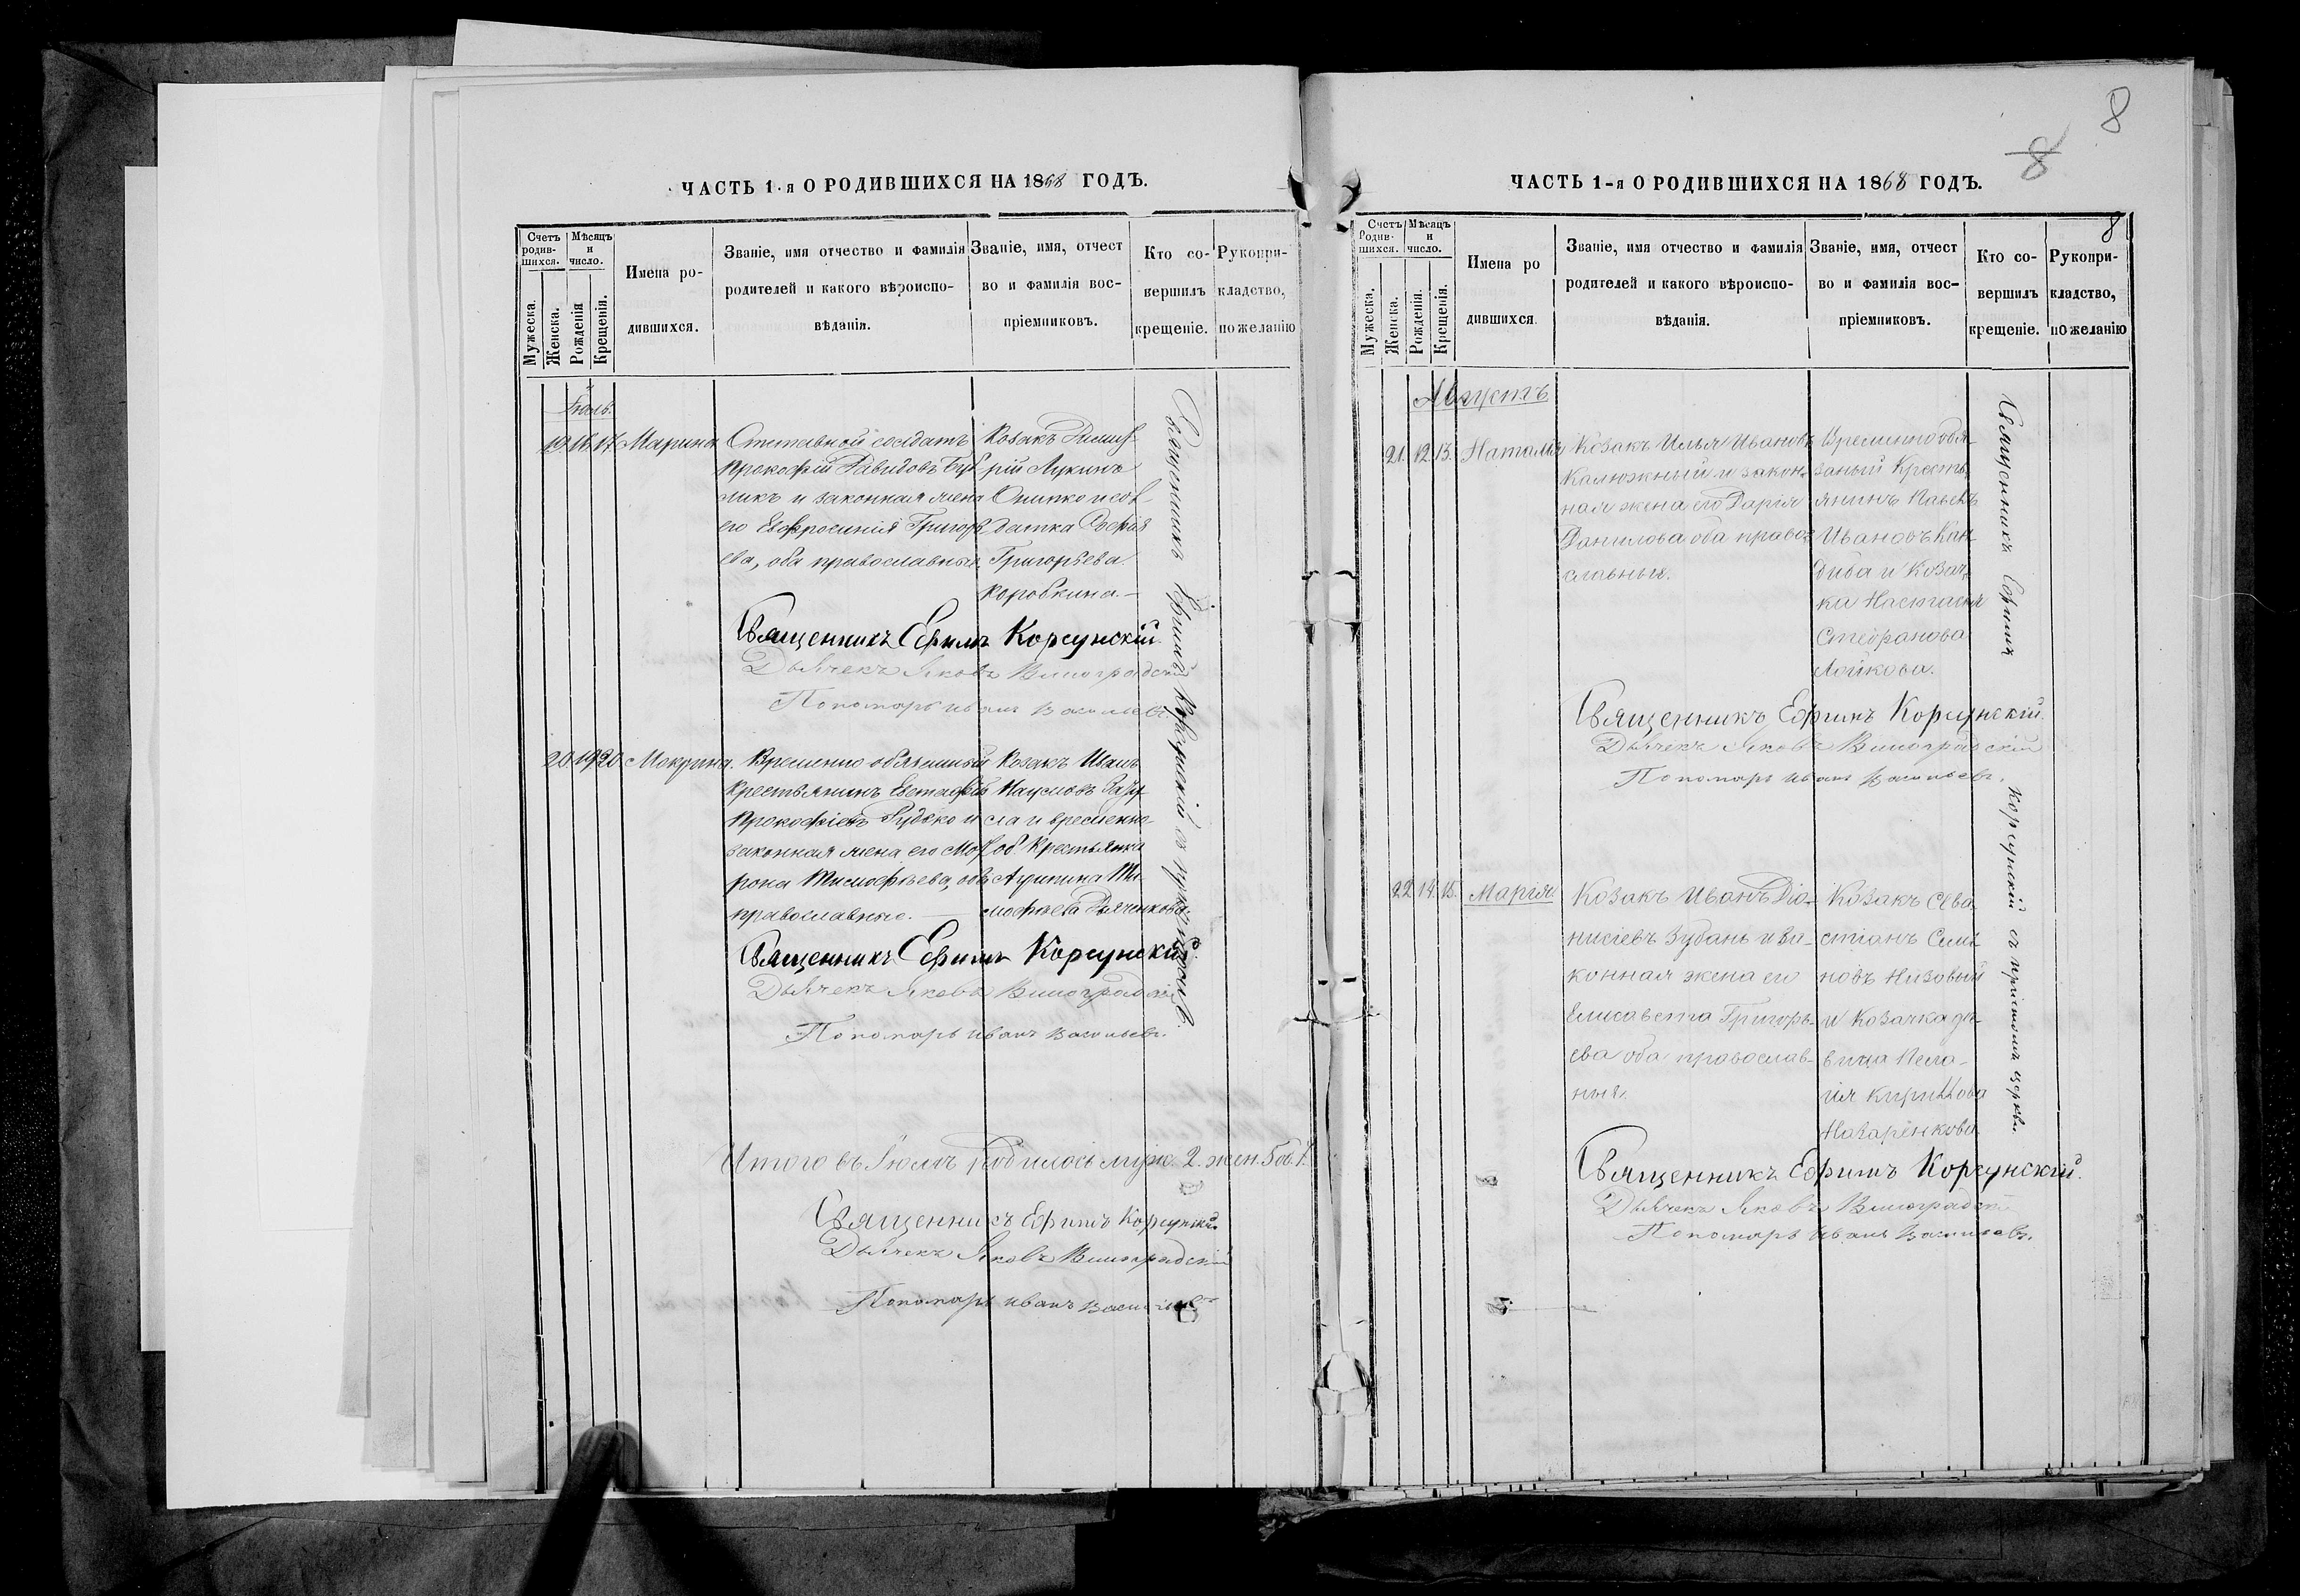 ЧАСТЬ 1-я О РОДИВШИХСЯ НА 1868 ГОДЪ.
Счетъ родив-шихся.
Мѣсяцъ и число.
Мужеска.
Женска.
Рожденія
Крещенія.
Имена ро-
дившихся.
Званіе, имя отчество и фамилія
родителей и какого вѣроиспо-
вѣданія.
Званіе, имя, отчест
во и фамилія вос-
пріемниковъ.
Кто со-
вершилъ
крещеніе.
Рукопри-
кладство,
по желанію
Іюль.
19 16 17 Марина
Отставной солдатъ
Прокофій Давидовъ
ликъ и законная жена
его Евфросинія Григорь
ева, оба православные.
Козакъ Димит
рій Лукинъ
Онипко и сол
датка Софія
Григорьева
Коробкина.—
Священникъ Ефимъ Корсунскій.
Дьячекъ Яковъ Виноградскій
Пономарь Иванъ Васильевъ.
20 19 20 Мокрина.
Временно обязанный
крестьянинъ Евстафій
Прокофіевъ Рудько и
законная жена его Мот
рона Тимофѣева, оба
православные. —
Козакъ Иванъ
Наумовъ
и временно
об. крестьянка
Акулина Ти
мофѣева Дьяченкова.
Священникъ Ефимъ Корсунскій.
Дьячекъ Яковъ Виноградскій
Пономарь Иванъ Васильевъ.
Священникъ Ефимъ Корсунскій съ причтомъ
Итого въ Іюлѣ родилось муж. 2. жен. 5 об. 7.
Священникъ Ефимъ Корсунскій
Дьячекъ Яковъ Виноградскій
Пономарь Иванъ Васильевъ
8
8
8
ЧАСТЬ 1-я О РОДИВШИХСЯ НА 1868 ГОДЪ.
Счетъ Родив-шихся.
Мѣсяцъ и число.
Мужеска.
Женска.
Рожденія.
Крещенія.
Имена ро
дившихся.
Званіе, имя отчество и фамилія
родителей и какого вѣроиспо-
вѣданія.
Званіе, имя, отчест
во и фамилія вос-
пріемниковъ.
Кто со-
вершилъ
крещеніе.
Рукопри-
кладство,
по желанію
Августъ
21. 12 13. Наталія
Козакъ Илья Ивановъ
Калюжный и закон-
ная жена его Дарія
Данилова оба право-
славные.
Временно обя-
заный Кресть-
янинъ Павелъ
Ивановъ Кан
диба и Козач-
ка Настасія
Стефанова
Лойкова.
Священникъ Ефимъ Корсунскій.
Дьячекъ Яковъ Виноградскій
Пономарь Иванъ Васильевъ.
22 14 15. Марія.
Козакъ Иванъ Діо-
нисіевъ Зубань и за-
конная жена его
Елисавета Григорь-
ева оба православ-
ныя.
Козакъ Сева
стіанъ Сими
новъ Низовый
и Козачка дѣ-
вица Пела-
гія Кирилова
Назаренкова.
Священникъ Ефимъ Корсунскій.
Дьячекъ Яковъ Виноградскій
Пономарь Иванъ Васильевъ.
Священникъ Ефимъ Корсунскій съ причтомъ церкви.